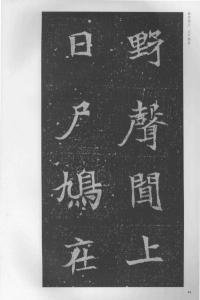 野聲聞上
日尸鳩在